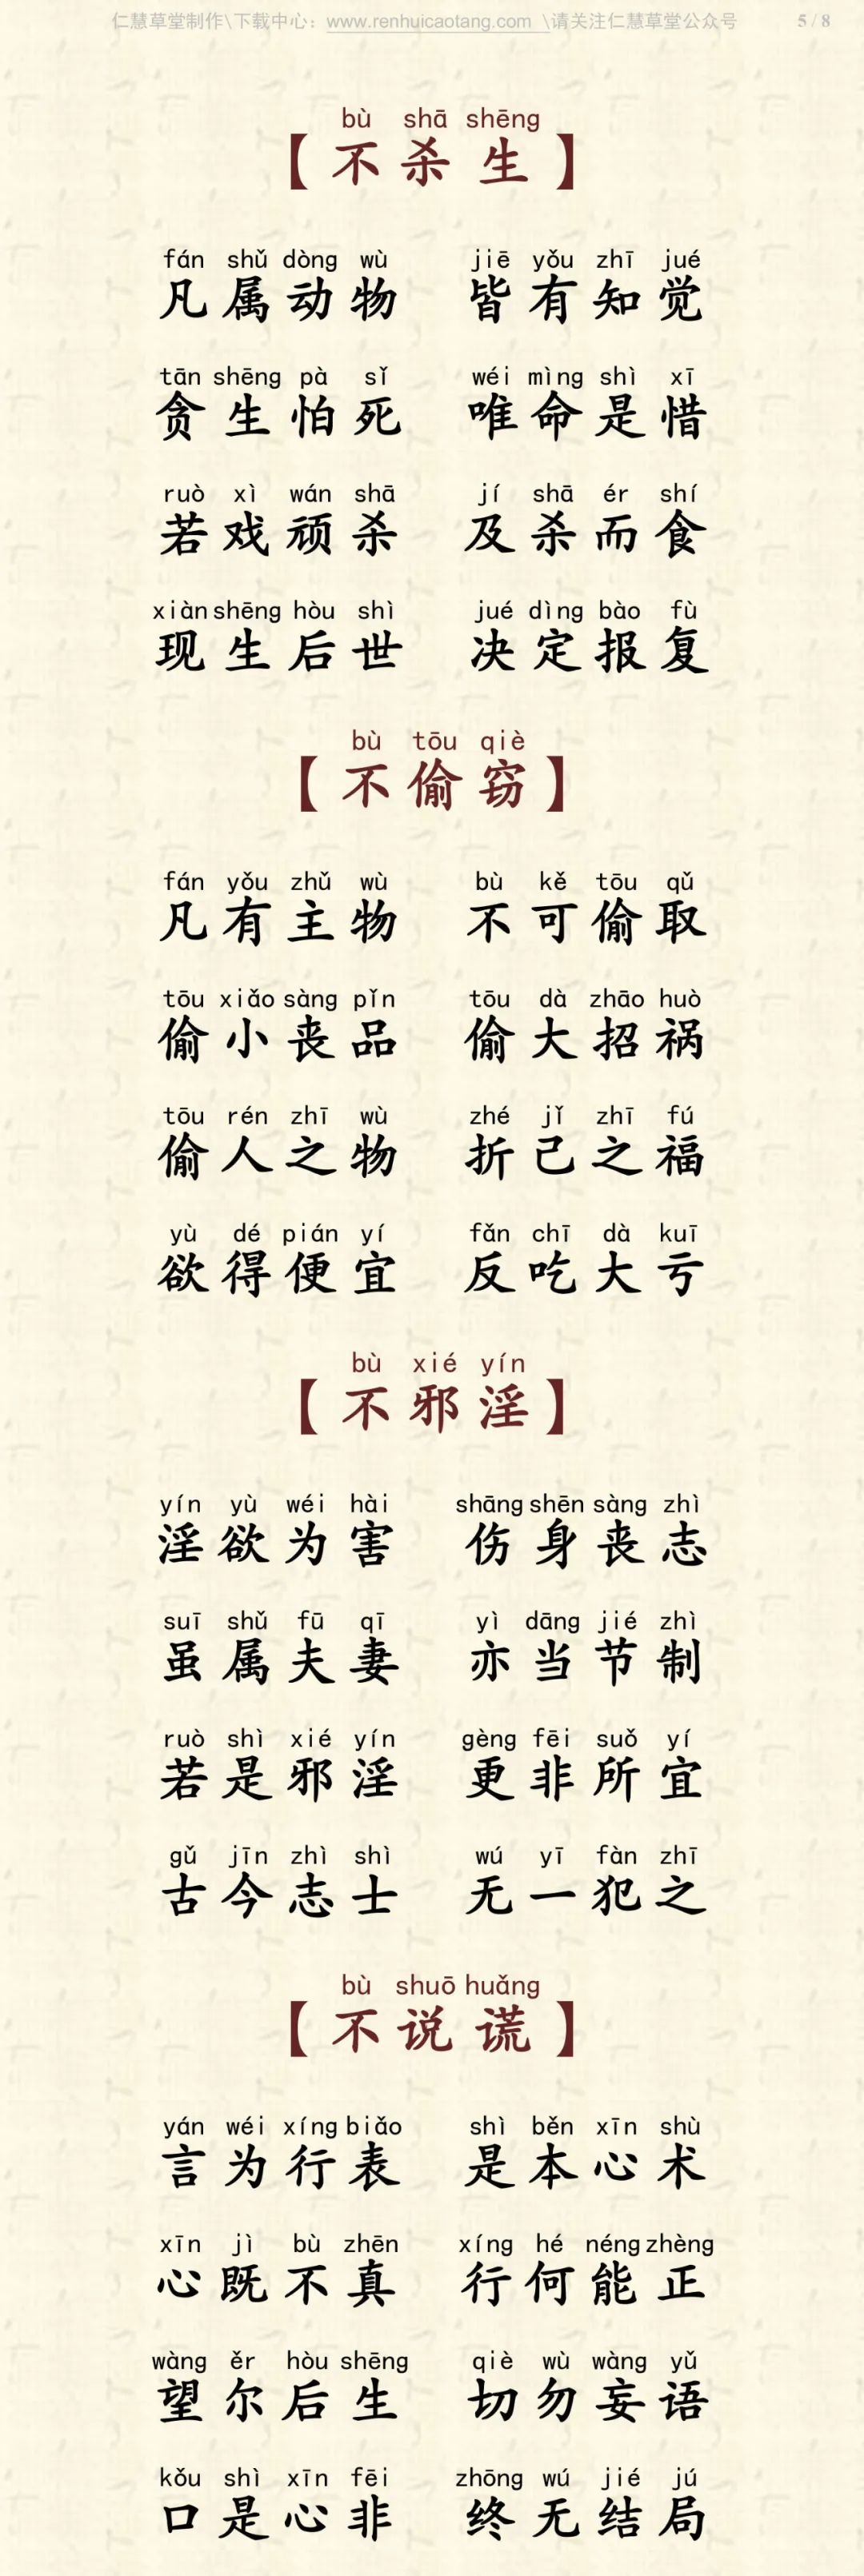 仁慧草堂制作\下载中心：www.renhuicaotang.com \请关注仁慧草堂公众号 5 / 8
bù shā shēng
【不杀生】
fán shǔ dòng wù jiē yǒu zhī jué
凡属动物 皆有知觉
tān shēng pà sǐ wéi mìng shì xī
贪生怕死 唯命是惜
ruò xì wán shā jí shā ér shí
若戏顽杀 及杀而食
xiàn shēng hòu shì jué dìng bào fù
现生后世 决定报复
bù tōu qiè
【不偷窃】
fán yǒu zhǔ wù bù kě tōu qǔ
凡有主物 不可偷取
tōu xiǎo sàng pǐn tōu dà zhāo huò
偷小丧品 偷大招祸
tōu rén zhī wù zhé jǐ zhī fú
偷人之物 折己之福
yù dé pián yí fǎn chī dà kuī
欲得便宜 反吃大亏
bù xié yín
【不邪淫】
yín yù wéi hài shāng shēn sàng zhì
淫欲为害 伤身丧志
suī shǔ fū qī yì dāng jié zhì
虽属夫妻 亦当节制
ruò shì xié yín gèng fēi suǒ yí
若是邪淫 更非所宜
gǔ jīn zhì shì wú yī fàn zhī
古今志士 无一犯之
bù shuō huǎng
【不说谎】
yán wéi xíng biǎo shì běn xīn shù
言为行表 是本心术
xīn jì bù zhēn xíng hé néng zhèng
心既不真 行何能正
wàng ěr hòu shēng qiè wù wàng yǔ
望尔后生 切勿妄语
kǒu shì xīn fēi zhōng wú jié jú
口是心非 终无结局